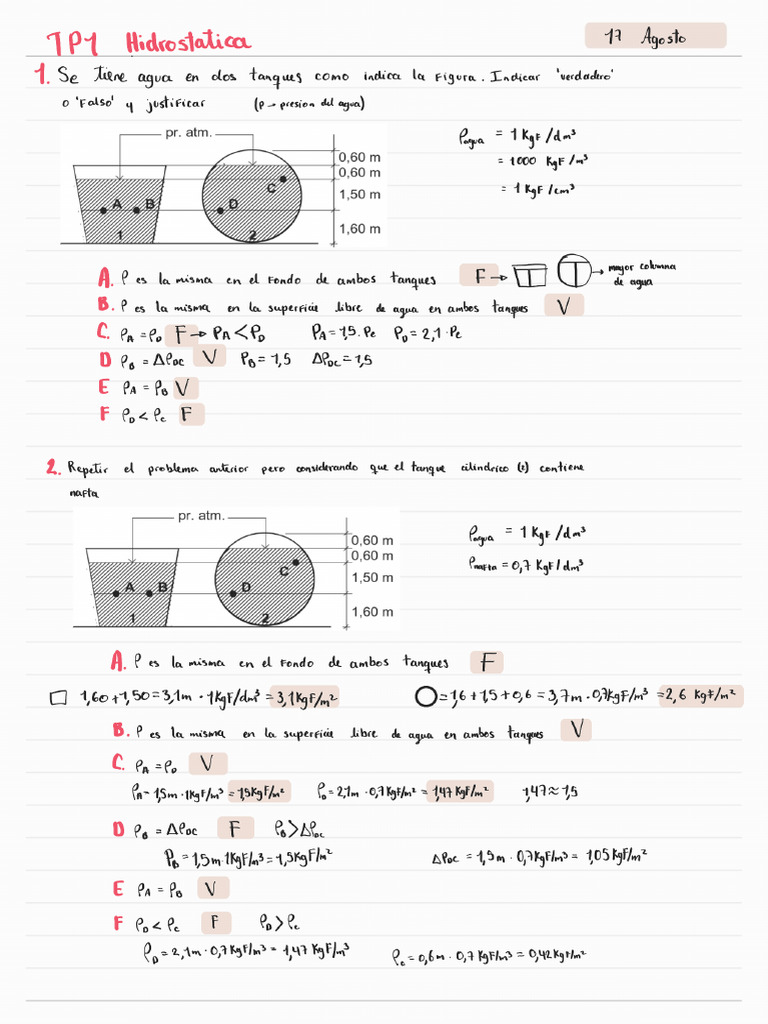 TP1 Hidrostatica
17 Agosto
1. Se tiene agua en dos tanques como indica la Figura. Indicar 'verdadero'
o 'Falso' y justificar (p → presion del agua)
pr. atm.
0,60 m
0,60 m
1,50 m
1,60 m
A B D C
1 2
ρagua = 1 KgF/dm³
= 1000 KgF/m³
= 1 KgF/cm³
A. P es la misma en el Fondo de ambos tanques F → → mayor columna
de agua
B. P es la misma en la superficie libre de agua en ambos tanques V
C. PA = PD F → PA < PD PA = 1,5 . Pe PD = 2,1 . Pe
D PB = ΔPDC V PB = 1,5 ΔPDC = 1,5
E PA = PB V
F PD < Pc F
2. Repetir el problema anterior pero considerando que el tanque cilindrico (2) contiene
nafta
pr. atm.
0,60 m
0,60 m
1,50 m
1,60 m
A B D C
1 2
ρagua = 1 KgF/dm³
ρnafta = 0,7 KgF/dm³
A. P es la misma en el Fondo de ambos tanques F
1,60 + 1,50 = 3,1m · 1KgF/dm³ = 3,1KgF/m² = 1,6 + 1,5 + 0,6 = 3,7m · 0,7KgF/m³ = 2,6 KgF/m²
B. P es la misma en la superficie libre de agua en ambos tanques V
C. PA = PD V
PA = 1,5m · 1KgF/m³ = 1,5KgF/m² PD = 2,1m · 0,7KgF/m² = 1,47 KgF/m² 1,47 ≈ 1,5
D PB = ΔPDC F PB > ΔPDC
PB = 1,5m · 1KgF/m³ = 1,5KgF/m² ΔPDC = 1,5m · 0,7KgF/m³ = 1,05 KgF/m²
E PA = PB V
F PD < Pc F PD > Pc
PD = 2,1m · 0,7KgF/m³ = 1,47 KgF/m³ Pc = 0,6m · 0,7 KgF/m³ = 0,42 KgF/m²